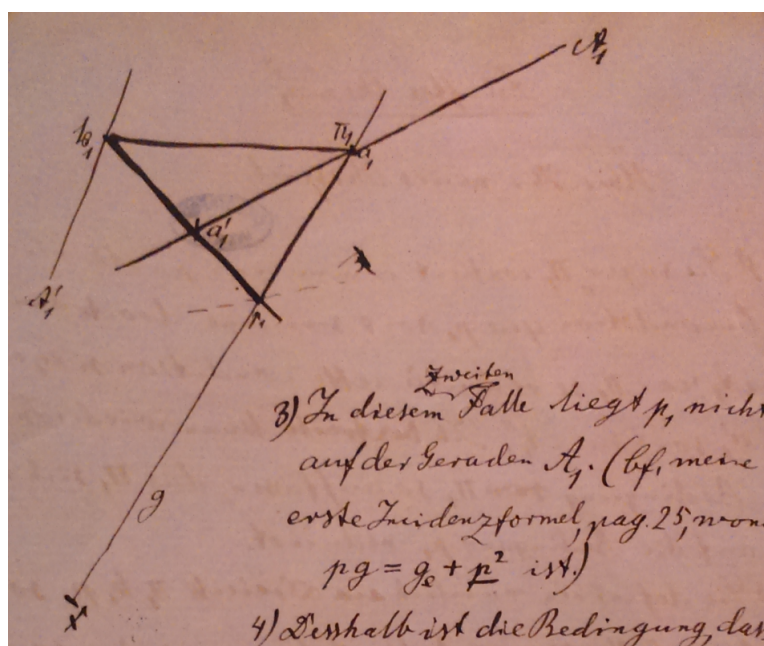 A₁
b₁
π₁
a₁
a₁'
A₁'
p₁
g
x
zweiten
3) In diesem Falle liegt p₁ nicht
auf der Geraden A₁. (cf. meine
erste Incidenzformel, pag. 25, won
pg = gₑ + p² ist.)
4) Desshalb ist die Bedingung, das